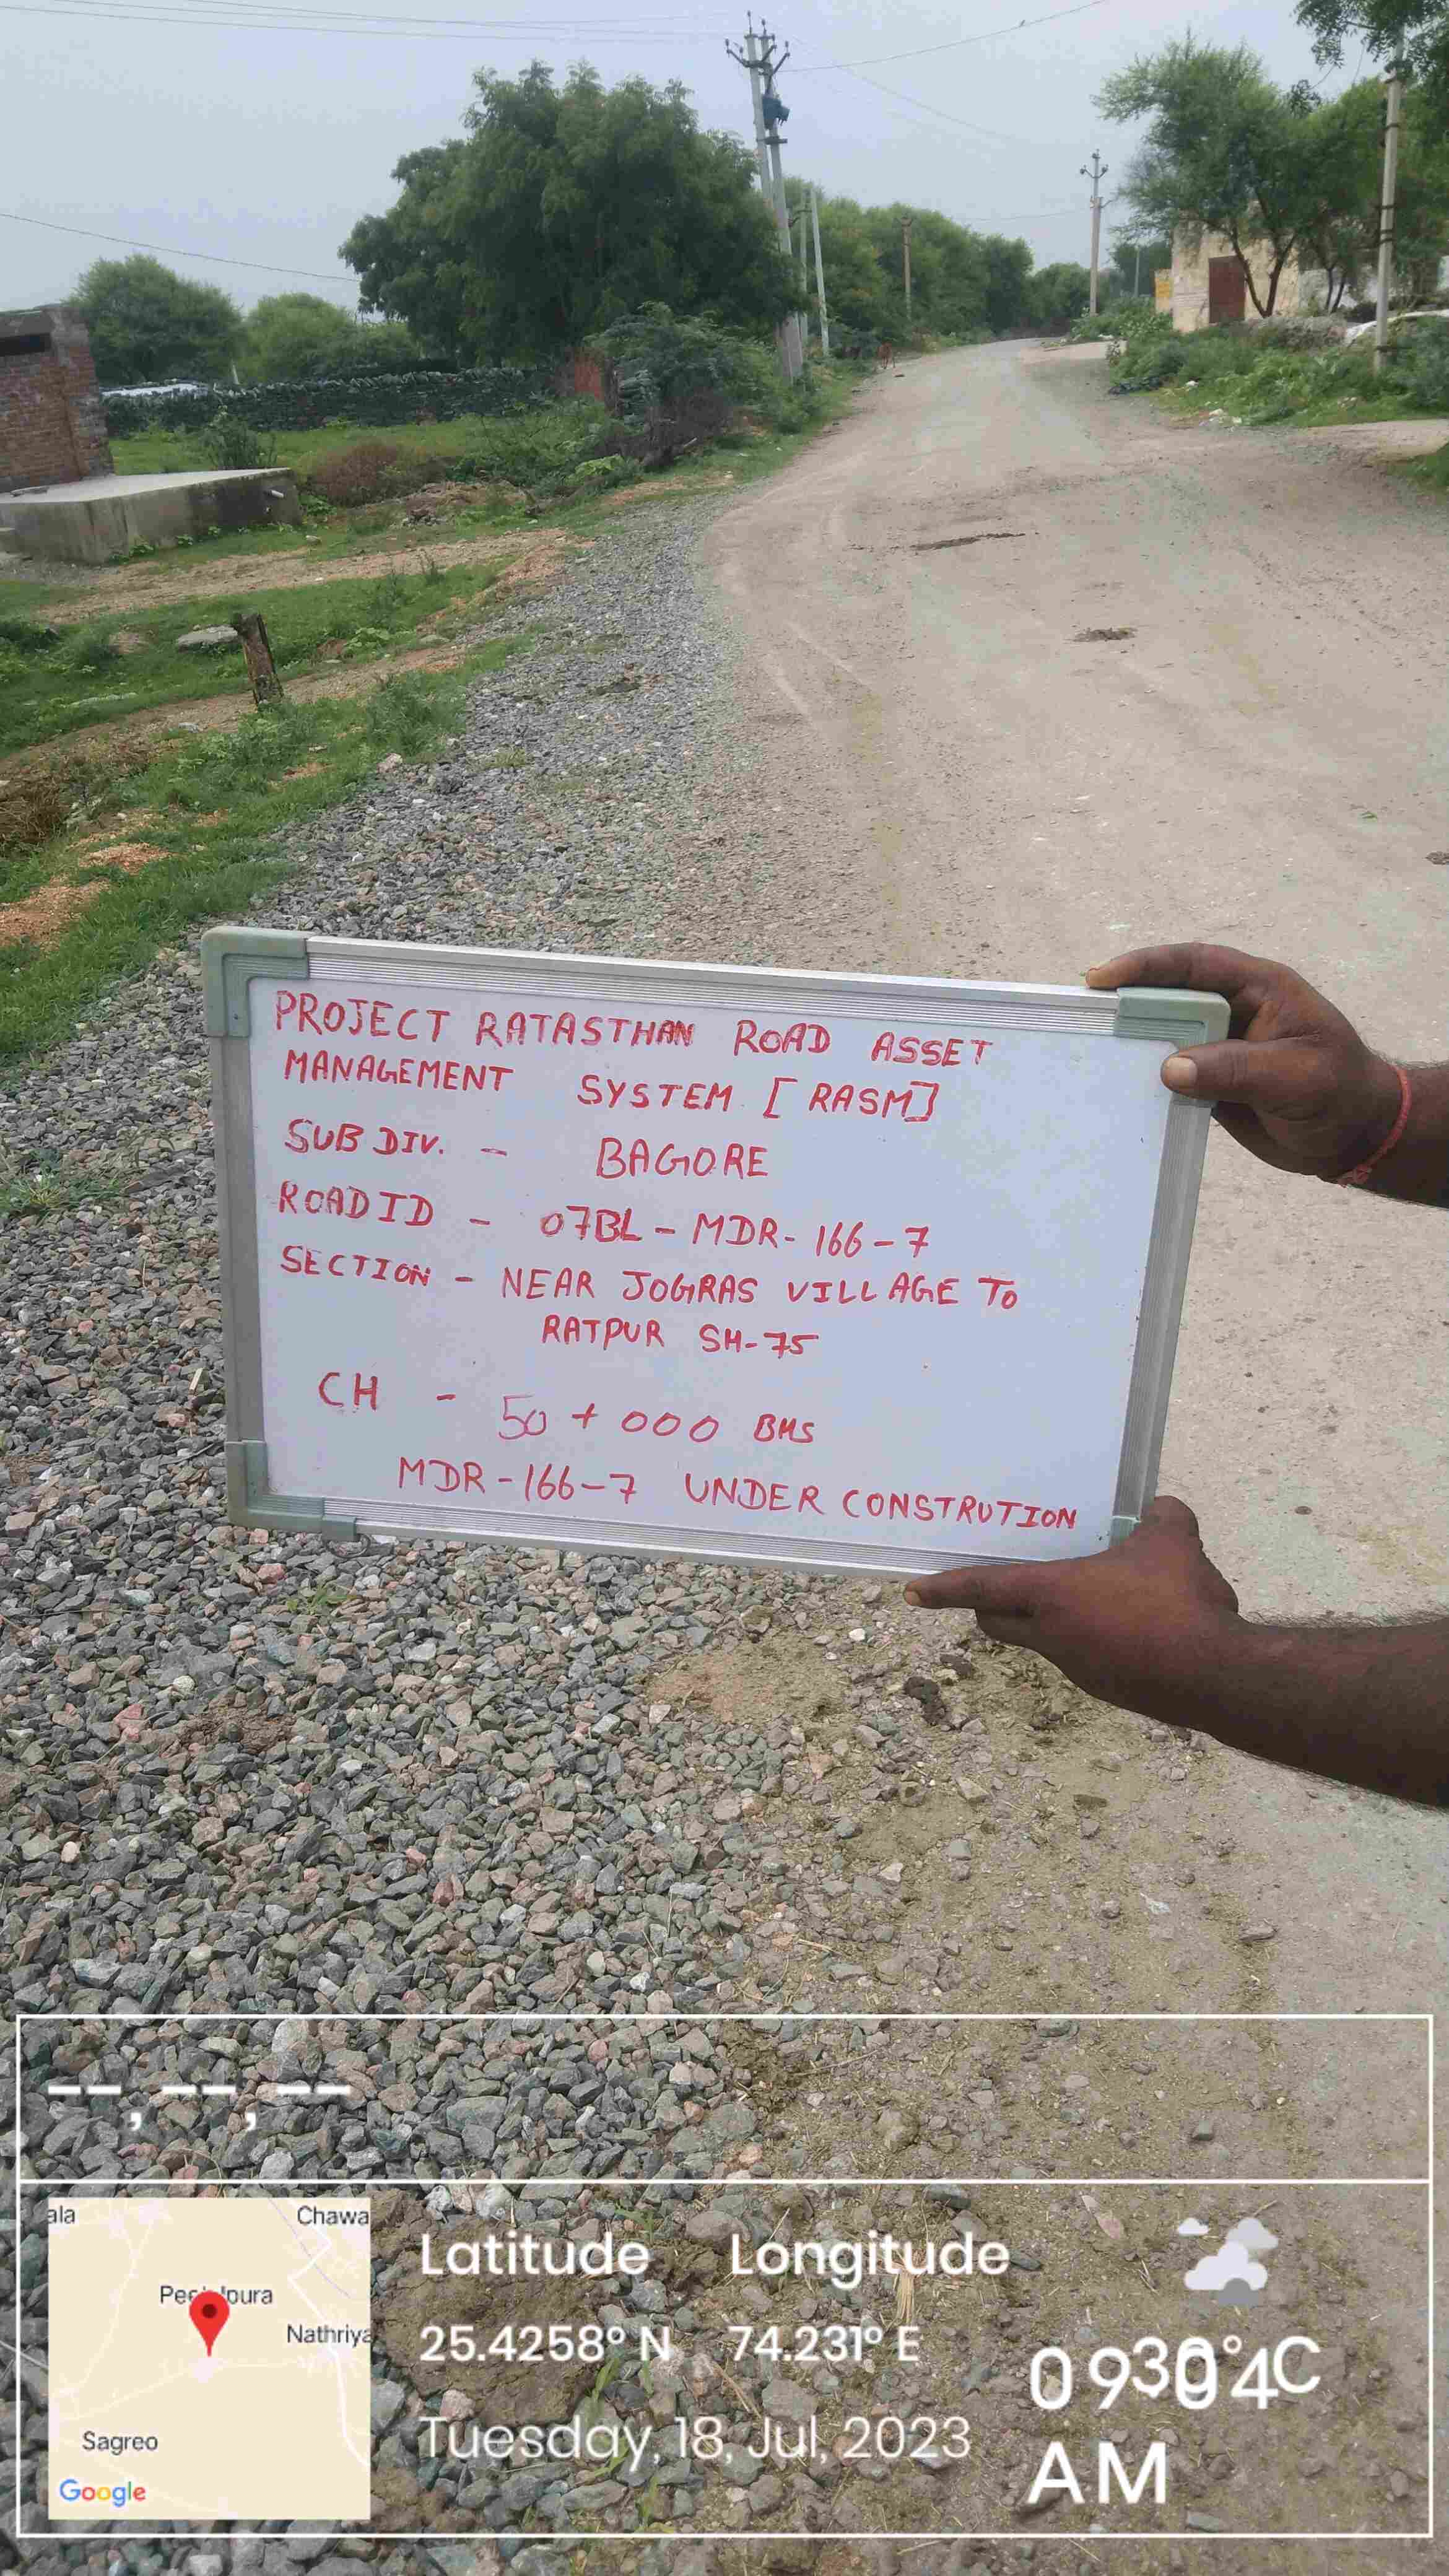 PROJECT RATASTHAN ROAD ASSET
MANAGEMENT SYSTEM [RASM]
SUB DIV. - BAGORE
ROAD ID - 07BL-MDR-166-7
SECTION - NEAR JOGRAS VILLAGE TO
RATPUR SH-75
CH - 50+000 BHS
MDR-166-7 UNDER CONSTRUTION
--, --, --
ala
Chawa
Nathriya
Sagreo
Google
Latitude Longitude
25.4258° N 74.231° E
Tuesday, 18, Jul, 2023
AM